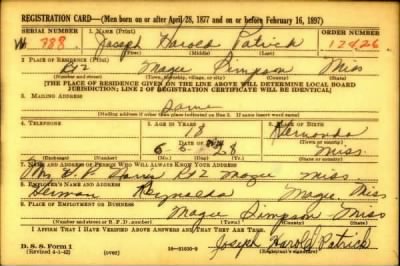 REGISTRATION CARD—(Men born on or after April 28, 1877 and on or before February 16, 1897)
SERIAL NUMBER 1. NAME (Print) ORDER NUMBER
Joseph Harold Patrick
(First) (Middle) (Last)
2. PLACE OF RESIDENCE (Print)
Rt 2 Magee Simpson Miss
(Number and street) (Town, township, village, or city) (County) (State)
[THE PLACE OF RESIDENCE GIVEN ON THE LINE ABOVE WILL DETERMINE LOCAL BOARD
JURISDICTION; LINE 2 OF REGISTRATION CERTIFICATE WILL BE IDENTICAL]
3. MAILING ADDRESS
Same
[Mailing address if other than place indicated on line 2. If same insert word same]
4. TELEPHONE 5. AGE IN YEARS 6. PLACE OF BIRTH
18 Hernando
DATE OF BIRTH
Miss.
(Exchange) (Number) (Mo.) (Day) (Yr.) (State or country)
7. NAME AND ADDRESS OF PERSON WHO WILL ALWAYS KNOW YOUR ADDRESS
Mrs. Rt 2 Magee Miss.
8. EMPLOYER'S NAME AND ADDRESS
Reynolds Magee Miss
9. PLACE OF EMPLOYMENT OR BUSINESS
Magee Simpson Miss
(Number and street or R. F. D. number) (Town) (County) (State)
I AFFIRM THAT I HAVE VERIFIED ABOVE ANSWERS AND THAT THEY ARE TRUE.
D. S. S. Form 1
(Revised 4-1-42) (over)
Joseph Harold Patrick
(Registrant's signature)